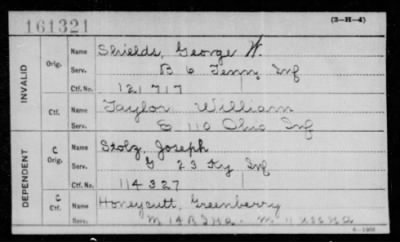 161321 (3-H-4)
INVALID
Orig. Name Shields, George W.
Serv. B 6 Tenn Inf
Ctf. No. 121717
Ctf. Name Taylor William
Serv. E 110 Ohio Inf
DEPENDENT
C Orig. Name Stolz, Joseph
Serv. G 23 Ky Inf
Ctf. No. 114327
C Ctf. Name Honeycutt, Greenberry
Serv. M 14